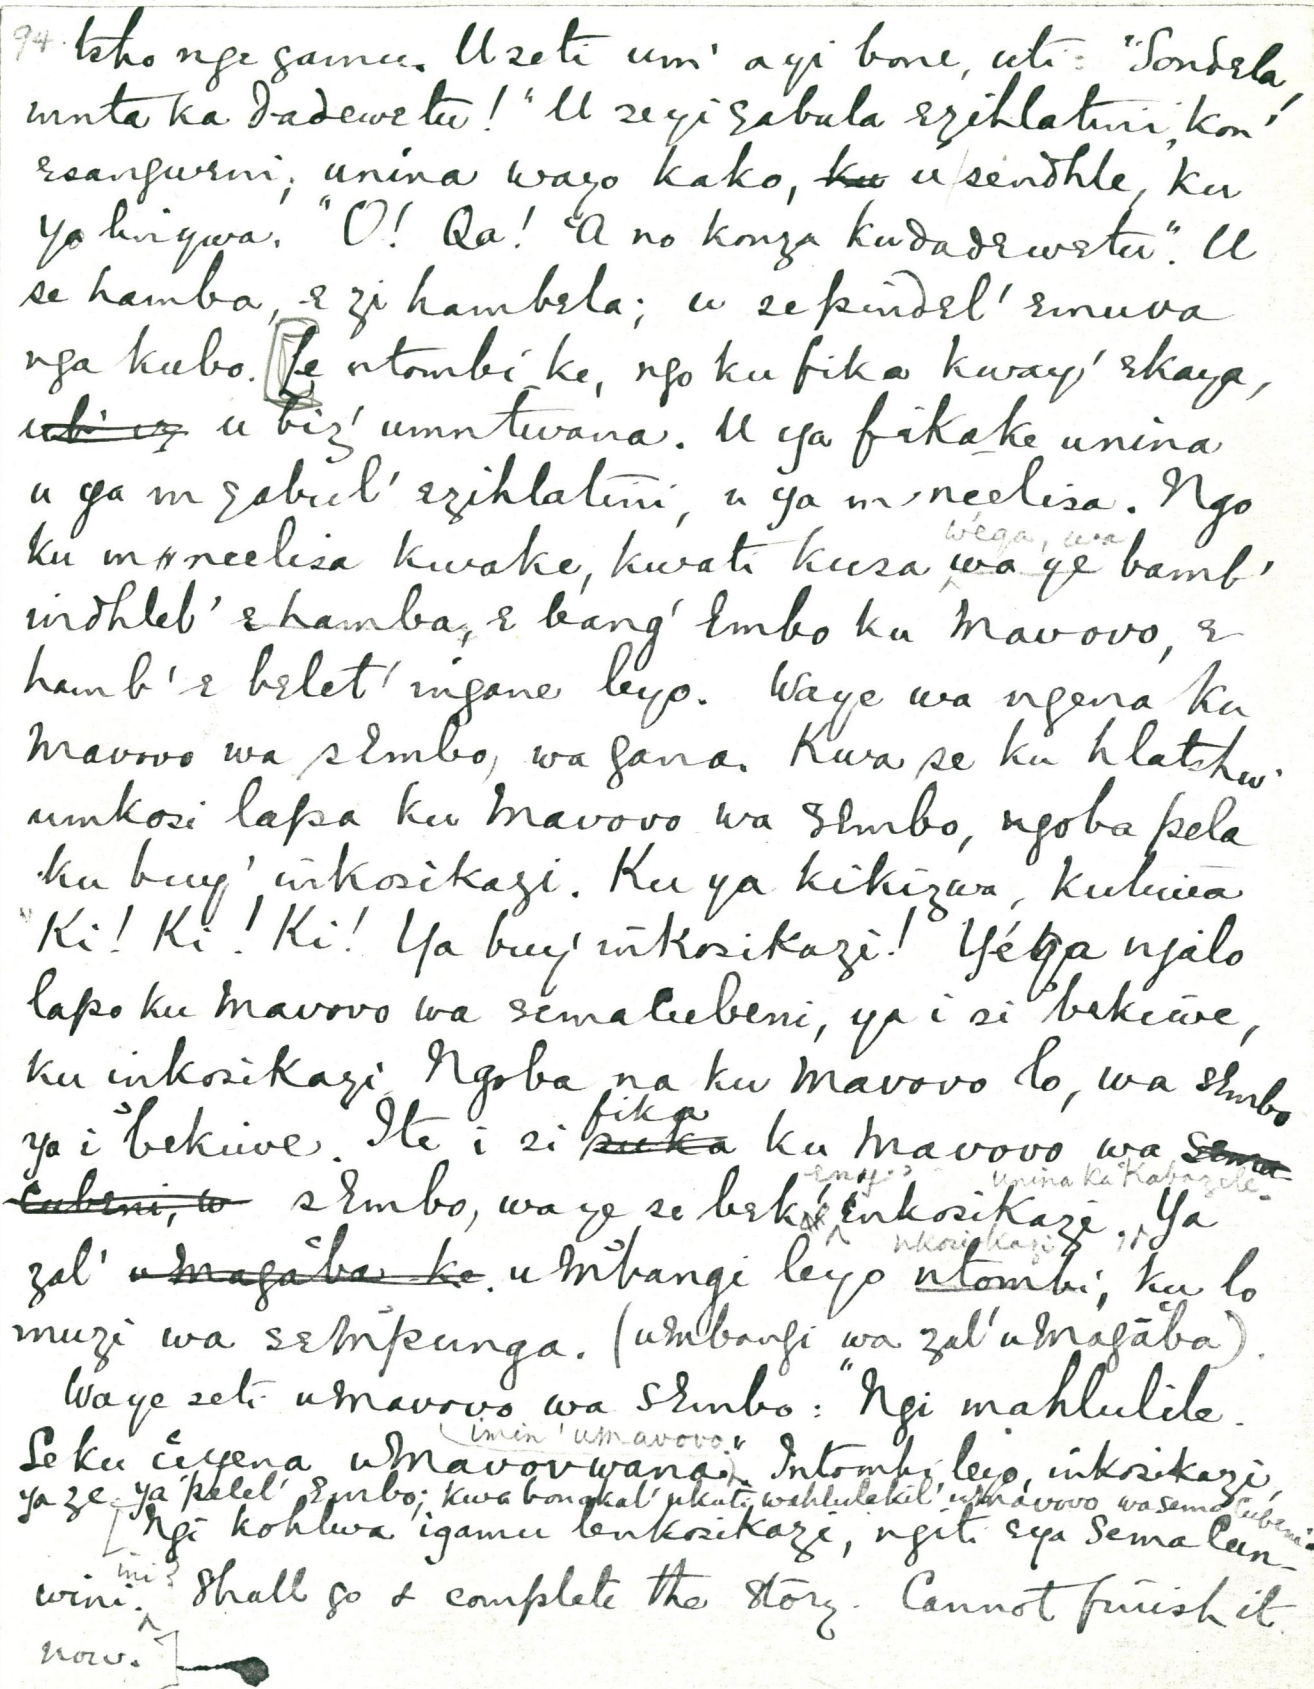 94. tsho nge gamu. U seti um' a yi bone, uti: "Sondela,
mnta ka dadewetu!" U se yi gabula ezihlatini, kon'
esangweni; unina wayo kako, ku u sendhle, ku
ya linywa. "O! Qa! "A no konza kudadewetu". U
se hamba, e zi hambela; u sepindel' emuva
nga kubo. Le ntombi ke, ngo ku fika kwayo ekaya,
u biz' umntwana. U ya fikake unina
u ya m gabul' ezihlatini, u ya m neelisa. Ngo
wega, wa
ku m neelisa kwake, kwati kusa wa ye bamb'
indhlel' e hamba, e bang' Embo ku Mavovo, e
hamb' e belet' ingane leyo. Waye wa ngena ku
Mavovo wa sEmbo, wa gana. Kwa se ku hlatshw'
umkosi lapa ku Mavovo wa sEmbo, ngoba pela
ku buy' inkosikazi. Ku ya kikizwa, kutiwa
"Ki! Ki! Ki! Ya buy' inkosikazi! Yéka njalo
lapo ku Mavovo wa semacubeni, ya i si bekiwe,
ku inkosikazi. Ngoba na ku Mavovo lo, wa sEmbo
fika
ya i bekiwe. Ite i si suka ku Mavovo wa sema
unina ka Kabazele.
cubeni, w sEmbo, wa ye se bek' enkosikazi. Ya
nkosikazi
zal' u Magaba ke. u Mbangi leyo ntombi, ku lo
muzi wa seMpunga. (uMbangi wa zal' uMagaba).
Waye seti uMavovo wa sEmbo: "Ngi mahlulile.
imin' uMavovo."
Seku ciyena uMavovwana. Intombi leyo, inkosikazi,
ya ze ya pelel' Embo; kwa bonakal' ukuti wahlulekil' uMavovo wasemacubeni.
[Ngi kohlwa igamu lenkosikazi, ngiti eya Semacun-
wini. Shall go & complete the story. Cannot finish it
now.]